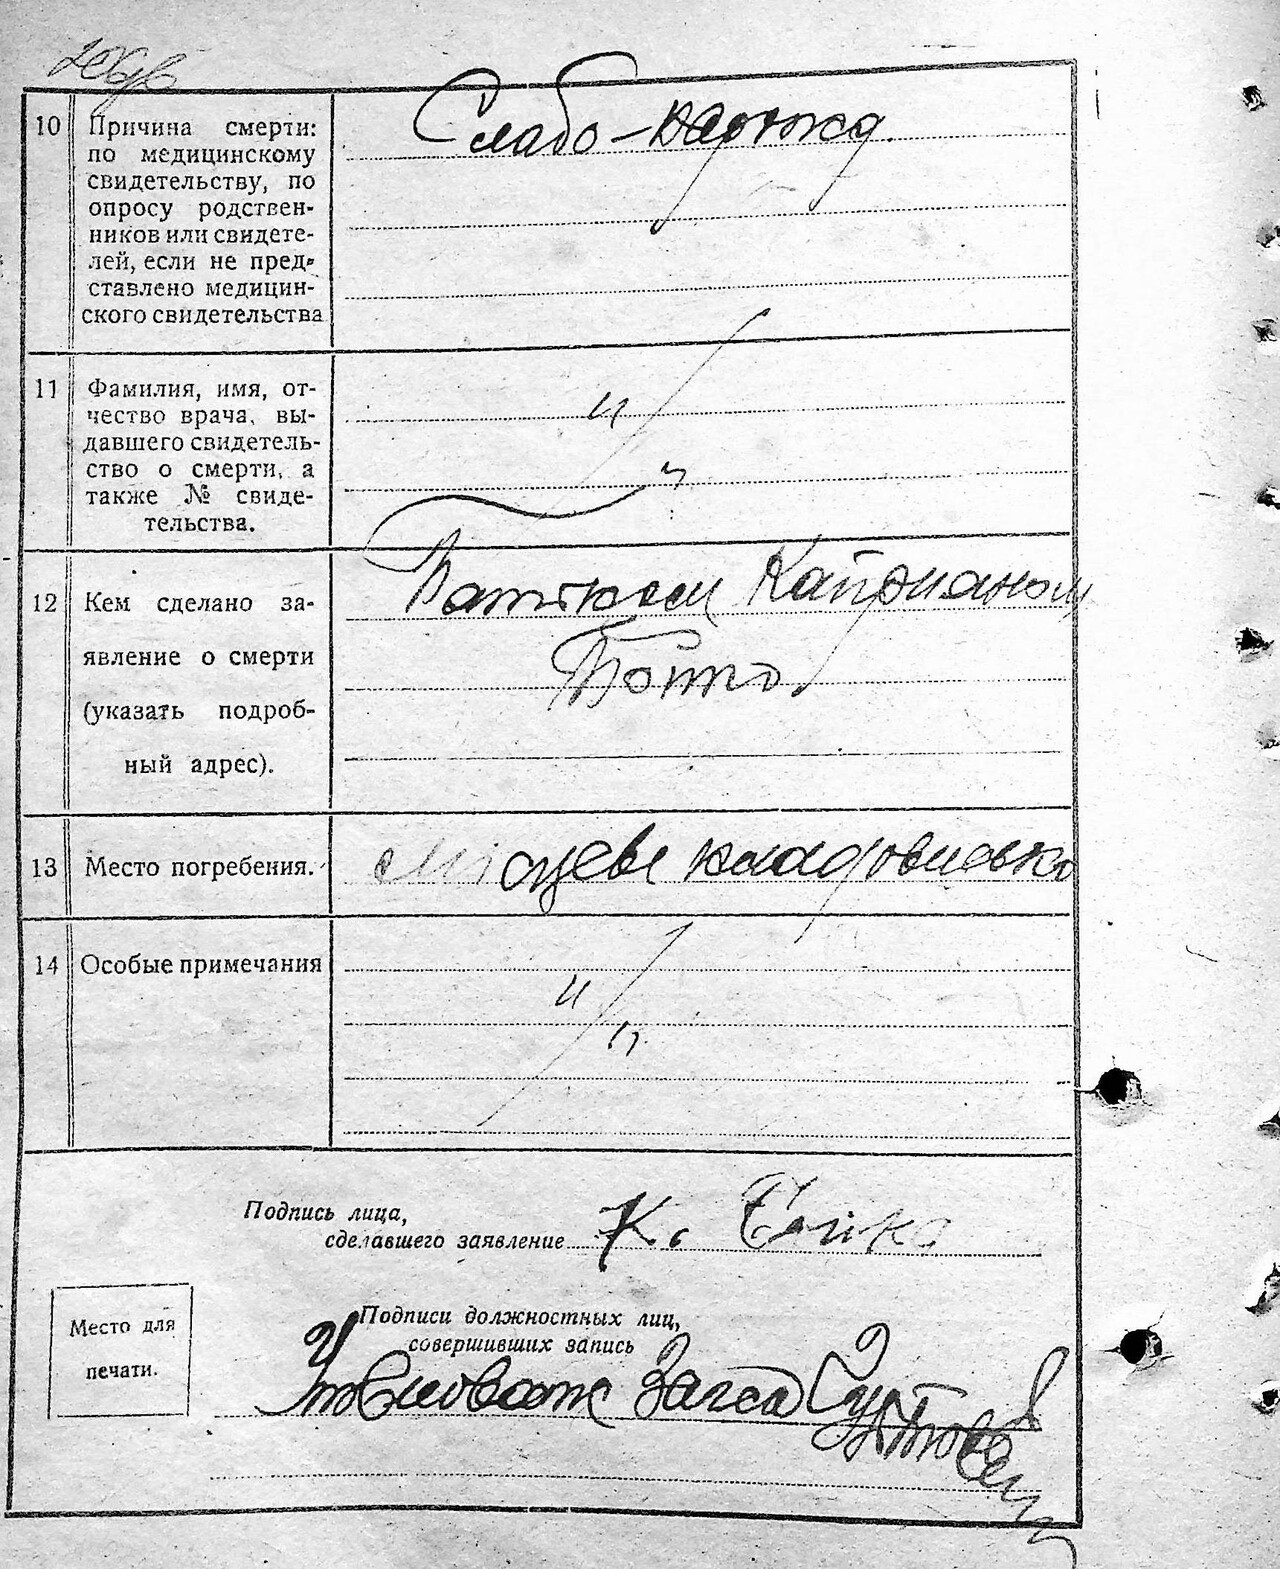 10
Причина смерти:
по медицинскому
свидетельству, по
опросу родствен-
ников или свидете-
лей, если не пред-
ставлено медицин-
ского свидетельства
Слабо-
11
Фамилия, имя, от-
чество врача, вы-
давшего свидетель-
ство о смерти, а
также № свиде-
тельства.
12
Кем сделано за-
явление о смерти
(указать подроб-
ный адрес).
Батьком
Бойко
13
Место погребения.
Місцеве кладовисько
14
Особые примечания
Подпись лица,
сделавшего заявление
К. Бойко
Подписи должностных лиц,
совершивших запись
Место для
печати.
Загса